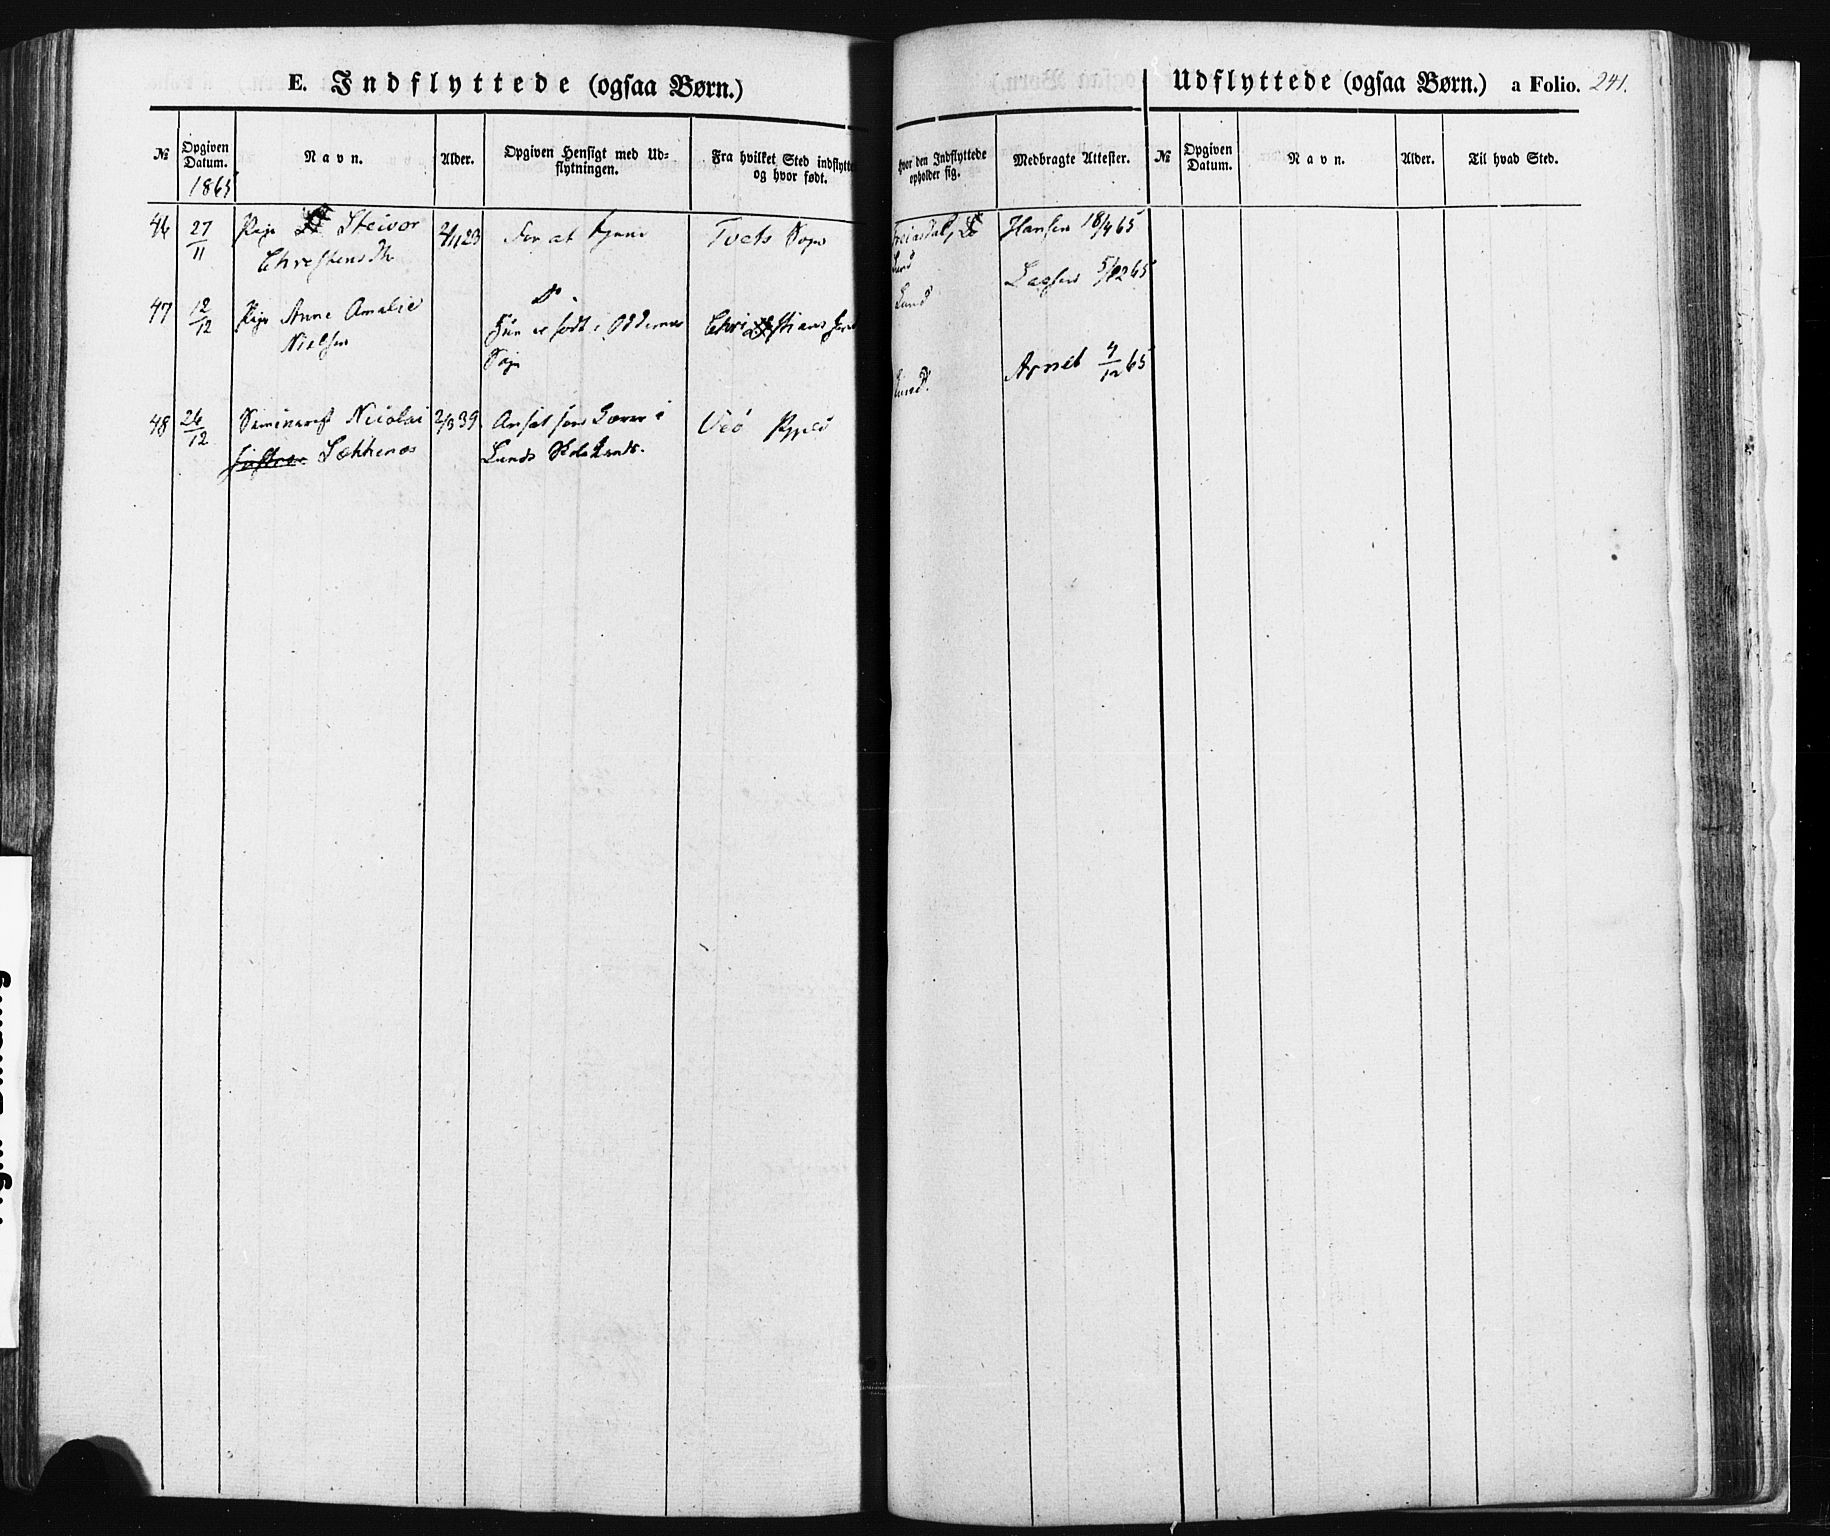 E. Indflyttede (ogsaa Børn.)
Udflyttede (ogsaa Børn.) a Folio. 241.
№
Opgiven Datum.
1865
Navn.
Alder.
Opgiven Hensigt med Ud-
flytningen.
Fra hvilket Sted indflytte
og hvor født.
hvor den Indflyttede
opholder sig.
Medbragte Attester.
№
Opgiven
Datum.
Navn.
Alder.
Til hvad Sted.
46 27/11 Pige Steivor 2/11 23 For at tjene Tvets Sogn Hansen 18/9 65
Chrestensdtr
Lund
5/12 65
47 12/12 Pige Anne Amalie Do Lund
Nielsen Hun er født i Oddernes Christianssand
Sogn
Lund. Arnet 4/12 65
48 26/12 Seminarist Nicolai 2/3 39 Ansat som Lærer i Veø
Sekkenes Lunds